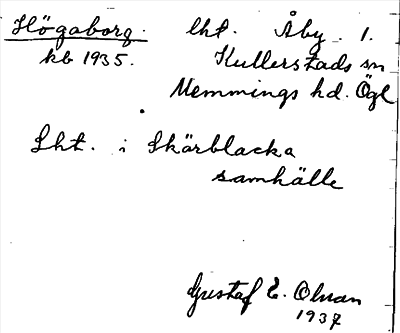 Högaborg. lht. Åby. 1.
kb 1935. Kullerstads sn
Memmings hd. Ögl
Lht. i Skärblacka
samhälle
Gustaf E. Olsan
1937